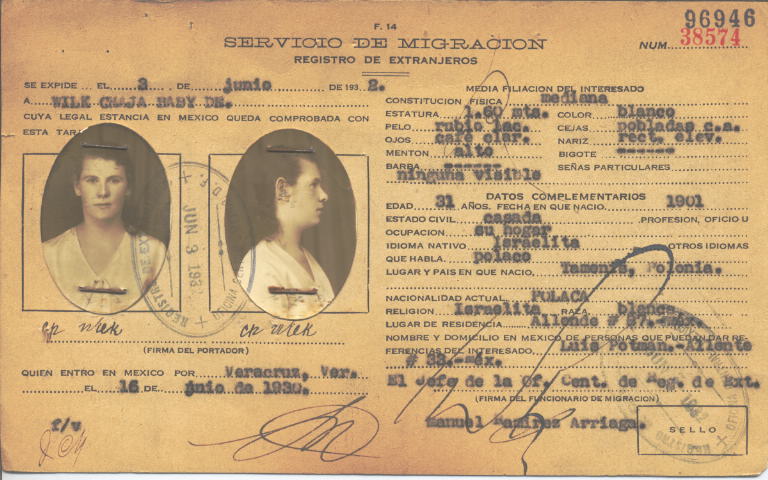 F. 14
96946
SERVICIO DE MIGRACION
NUM. 38574
REGISTRO DE EXTRANJEROS
SE EXPIDE EL 3 DE junio DE 1932.
A WILK CHAJA BABY DE.
CUYA LEGAL ESTANCIA EN MEXICO QUEDA COMPROBADA CON
ESTA TAR
MEDIA FILIACION DEL INTERESADO
CONSTITUCION FISICA mediana
ESTATURA 1.60 mts. COLOR blanco
PELO rubio lac. CEJAS pobladas c.a.
OJOS café clar. NARIZ rect. elev.
MENTON alto BIGOTE ------
BARBA ------ SEÑAS PARTICULARES
ninguna visible
DATOS COMPLEMENTARIOS
EDAD 31 AÑOS. FECHA EN QUE NACIO. 1901
ESTADO CIVIL casada PROFESION, OFICIO U
OCUPACION su hogar
IDIOMA NATIVO Israelita OTROS IDIOMAS
QUE HABLA. polaco
LUGAR Y PAIS EN QUE NACIO, Polonia.
NACIONALIDAD ACTUAL POLACA
RELIGION Israelita RAZA blanca
LUGAR DE RESIDENCIA Allende # 37.-méx.
NOMBRE Y DOMICILIO EN MEXICO DE PERSONAS QUE PUEDAN DAR RE-
FERENCIAS DEL INTERESADO, Luis Potman.-Allente
# 33.-méx.
El Jefe de la Of. Cent. de Reg. de Ext.
(FIRMA DEL FUNCIONARIO DE MIGRACION)
Manuel Ramirez Arriaga.
SELLO
JUN 3 193
(FIRMA DEL PORTADOR)
QUIEN ENTRO EN MEXICO POR Veracruz, Ver.
EL 16 DE junio de 1930.
f/v